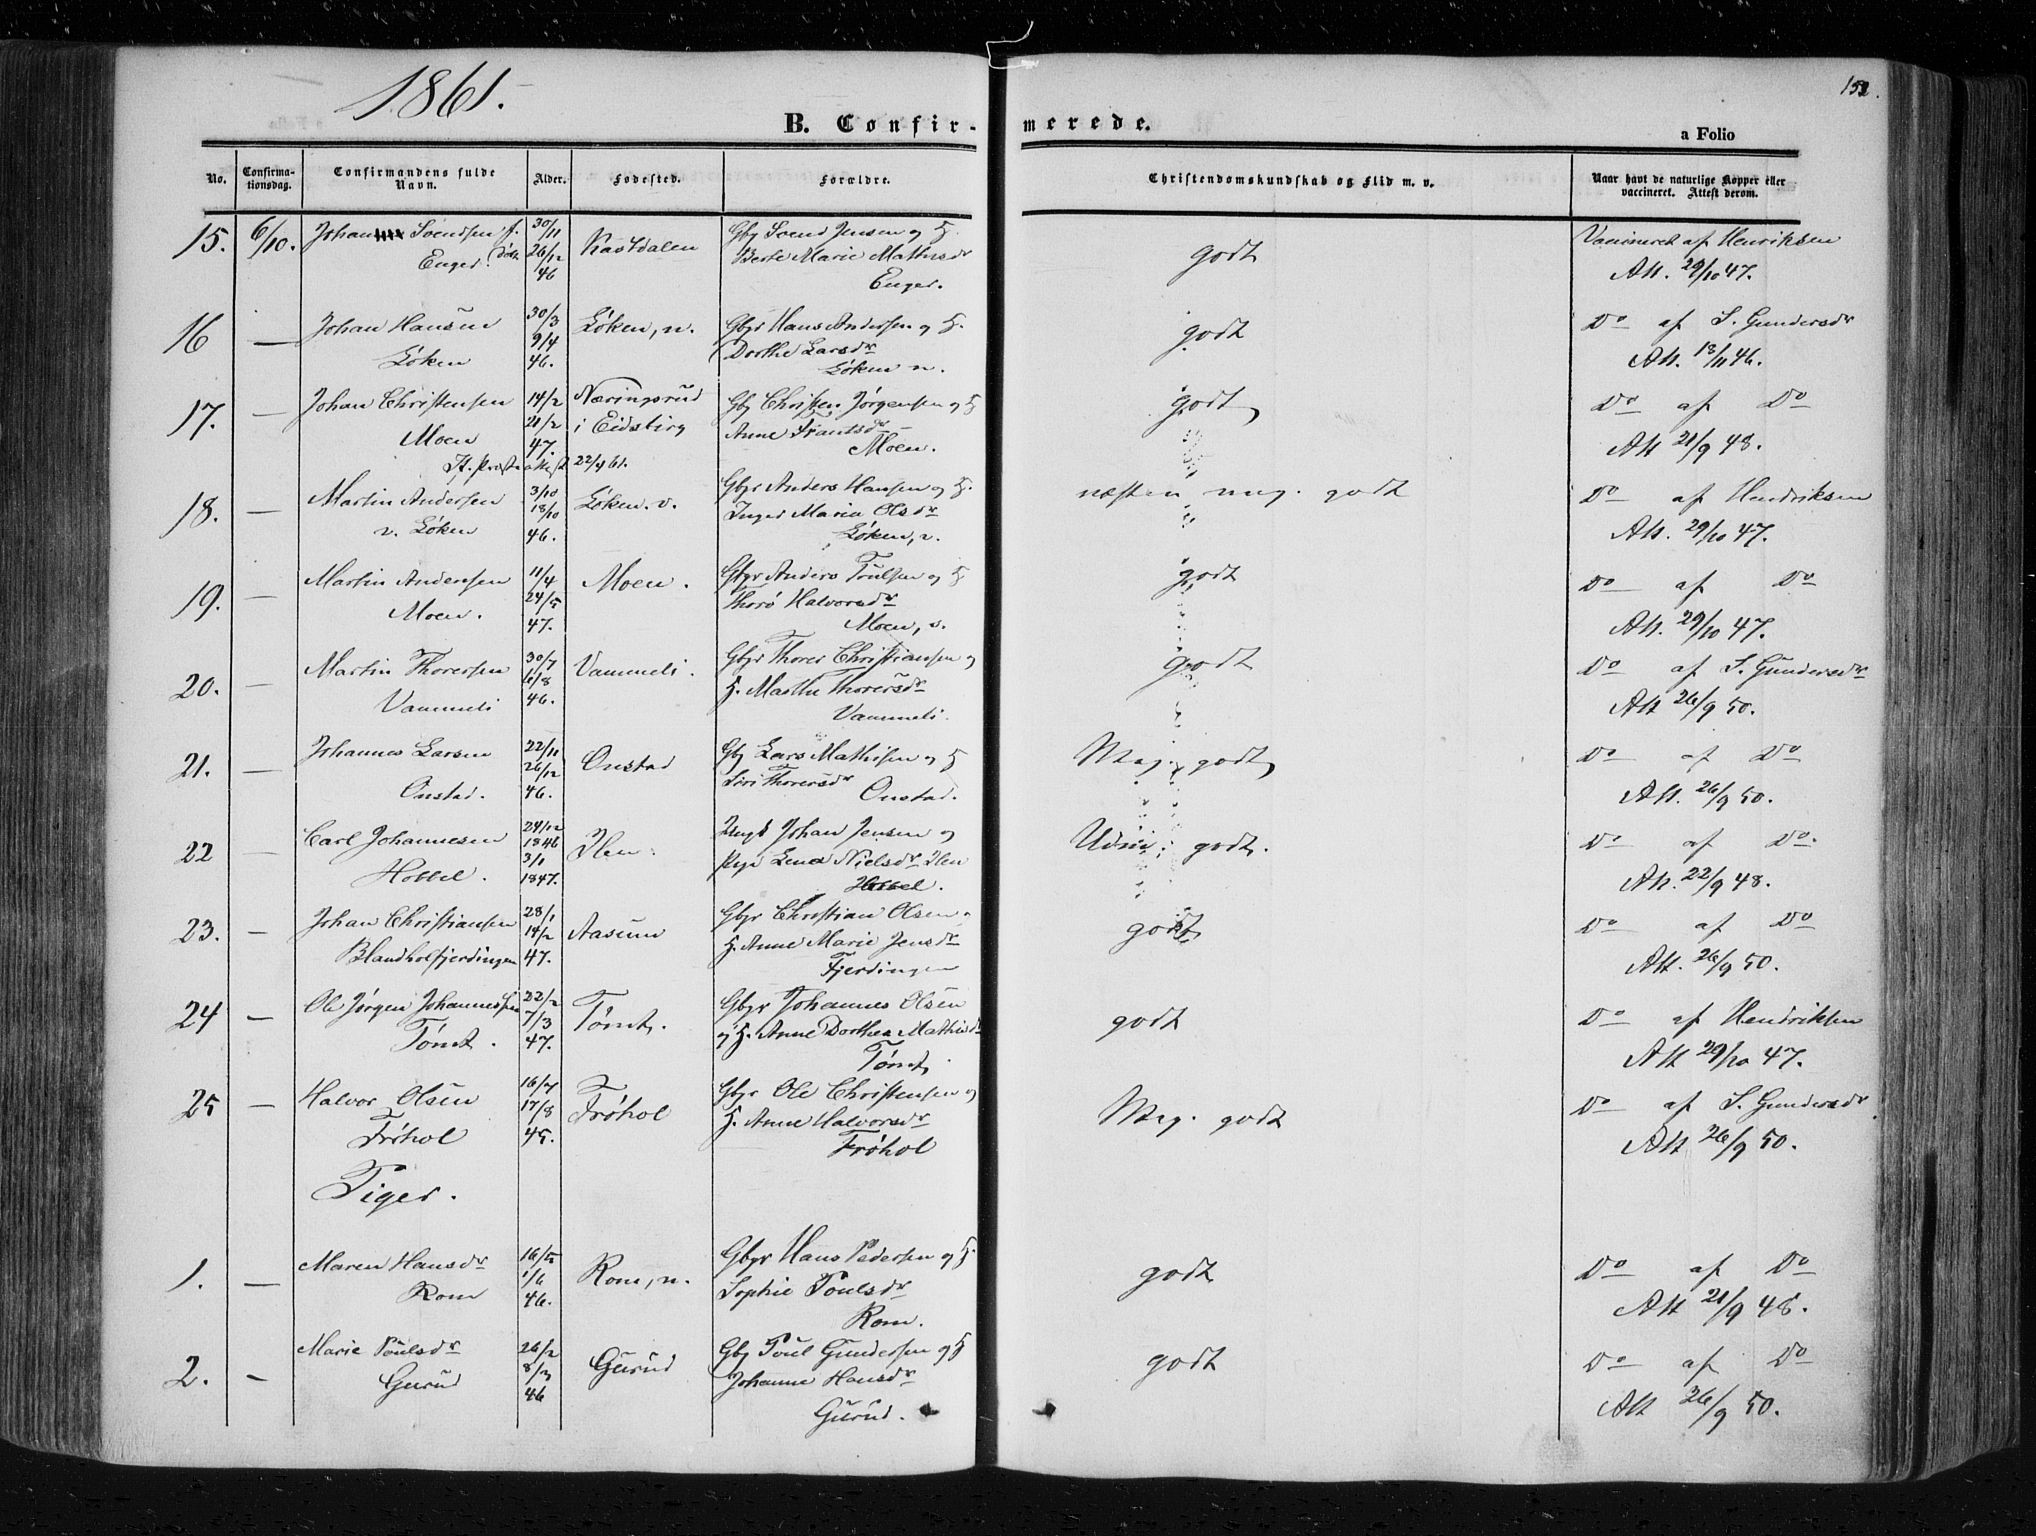 1861.
152.
B. Confirmerede.
a Folio
No. Confirmationsdag. Confirmandens fulde Navn. Alder. Fødested. Forældre. Christendomskundskab og Flid m. v. Naar havt de naturlige Kopper eller vaccineret. Attest derom.
15. 6/10. Johan Svendsen f. 30/11 Kastdalen Gbg Svend Jensen og H. godt Vaccineret af Henriksen
Enger. døbt 26/12 Berte Marie Mathisdr Att. 29/10 47.
46 Enger.
16 — Johan Hansen 30/3 Løken, n. Gbgr Hans Andersen og H. godt Do af S. Gundersdr
Løken 9/4 Dorthe Larsdr Att. 18/11 46.
46. Løken n.
17. — Johan Christensen 14/2 Næringsrud Gbg Christen Jørgensen og H godt Do af Do
Moen 21/2 i Eidsberg Anne Frantsdr Att 21/9 48.
47. Moen.
flt. Præsteattest 22/4 61.
18. — Martin Andersen 3/10 Løken. v. Gbgr Anders Hansen og H. næsten meg. godt Do af Hendriksen
v. Løken 18/10 Inger Maria Olsdr Att. 29/10 47.
46. Løken, v.
19. — Martin Andersen 11/4 Moen. Gbgr Anders Poulsen og H godt Do af Do
Moen. 24/5 Thorø Halvorsdr Att. 29/10 47.
47. Moen, v.
20. — Martin Thorersen 30/7 Vammeli. Gbgr Thorer Christiansen og godt Do af S. Gundersdr
Vammeli 6/8 H. Marthe Thorersdr Att 26/9 50.
46. Vammeli.
21. — Johannes Larsen 22/11 Onstad Gbg Lars Mathisen og H Meg. godt Do af Do
Onstad. 26/12 Siri Thorersdr Att. 26/9 50.
46. Onstad.
22 — Carl Johannesen 24/12 Ilen. Ungk Johan Jensen og Udm. godt. Do af Do.
Hobbel. 1846 Pige Lena Nielsdr Ilen Att. 22/9 48.
3/1 Hobbel.
1847.
23. — Johan Christiansen 28/1 Aasum Gbgr Christian Olsen og godt Do af Do
Blandholfjerdingen 14/2 H. Anne Marie Jensdr Att. 26/9 50.
47. Fjerdingen
24 — Ole Jørgen Johannessen 22/2 Tømt. Gbgr Johannes Olsen godt Do af Hendriksen
Tømt. 7/3 og H. Anne Dorthea Mathisdr Att 29/10 47.
47. Tømt
25 — Halvor Olsen 16/7 Frøhol Gbgr Ole Christensen og Meg. godt Do af S. Gundersdr
Frøhol 17/8 H. Anne Halvorsdr Att 26/9 50.
45. Frøhol
Piger.
1. — Maren Hansdr 16/5 Rom, n. Gbgr Hans Pedersen og H. godt Do af Do
Rom 1/6 Sophie Poulsdr Att 21/9 48.
46. Rom.
2. — Marie Poulsdr 26/2 Gurud Gbg Poul Gundersen og H godt Do af Do
Gurud 8/3 Johanne Hansdr Att 26/9 50.
46 Gurud.